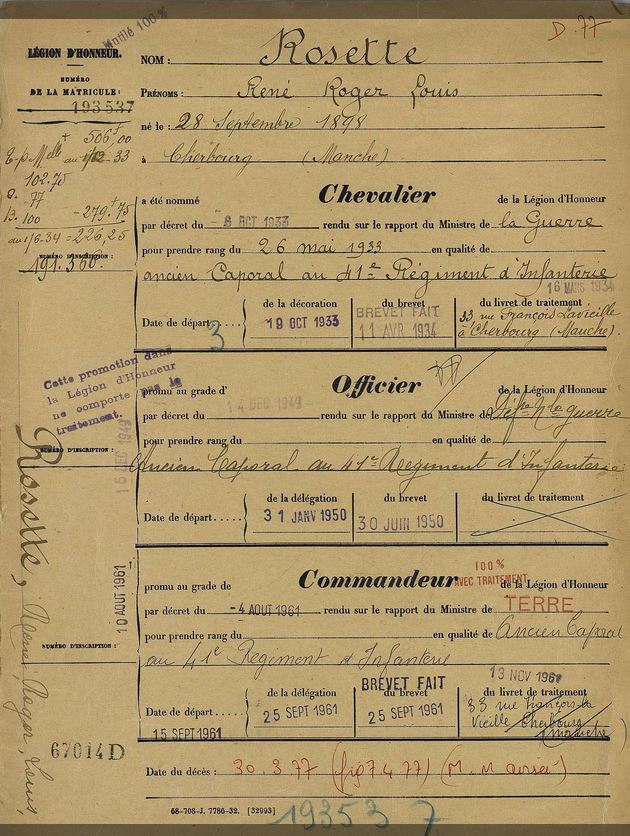 D. 77
Mutilé 100%
LÉGION D'HONNEUR.
NUMÉRO
DE LA MATRICULE :
193537
NOM : Rosette
PRÉNOMS : René Roger Louis
né le : 28 Septembre 1898
à Cherbourg (Manche)
506,00
au 1/12-33
102.75
77
100 -279,75
au 1/6-34 = 226,25
NUMÉRO D'INSCRIPTION :
191.360.
a été nommé Chevalier de la Légion d'Honneur
par décret du - 6 OCT 1933 rendu sur le rapport du Ministre de la Guerre
pour prendre rang du 26 mai 1933 en qualité de
ancien Caporal au 41e Régiment d'Infanterie
16 MARS 1934
de la décoration du brevet du livret de traitement
Date de départ.... 19 OCT 1933 BREVET FAIT 11 AVR 1934 33 rue François Lavieille
à Cherbourg (Manche).
3
Cette promotion dans
la Légion d'Honneur
ne comporte pas le
traitement.
promu au grade d' Officier de la Légion d'Honneur
par décret du 14 DEC 1949 rendu sur le rapport du Ministre de Déf. Nle guerre
pour prendre rang du en qualité de
Ancien Caporal au 41e Régiment d'Infanterie
NUMÉRO D'INSCRIPTION :
16 DEC 1949
de la délégation du brevet du livret de traitement
Date de départ.... 31 JANV 1950 30 JUIN 1950
Rosette, René, Roger, Louis,
100%
AVEC TRAITEMENT
promu au grade de Commandeur de la Légion d'Honneur
par décret du -4 AOUT 1961 rendu sur le rapport du Ministre de TERRE
pour prendre rang du en qualité de Ancien Caporal
au 41e Régiment d'Infanterie
10 AOUT 1961
NUMÉRO D'INSCRIPTION :
13 NOV 1961
de la délégation BREVET FAIT du brevet du livret de traitement
Date de départ.... 25 SEPT 1961 25 SEPT 1961 33 rue François la
Vieille Cherbourg
(Manche)
15 SEPT 1961
67014D
Date du décès : 30.3.77
68-708-J. 7786-32. [32993]
19353 7